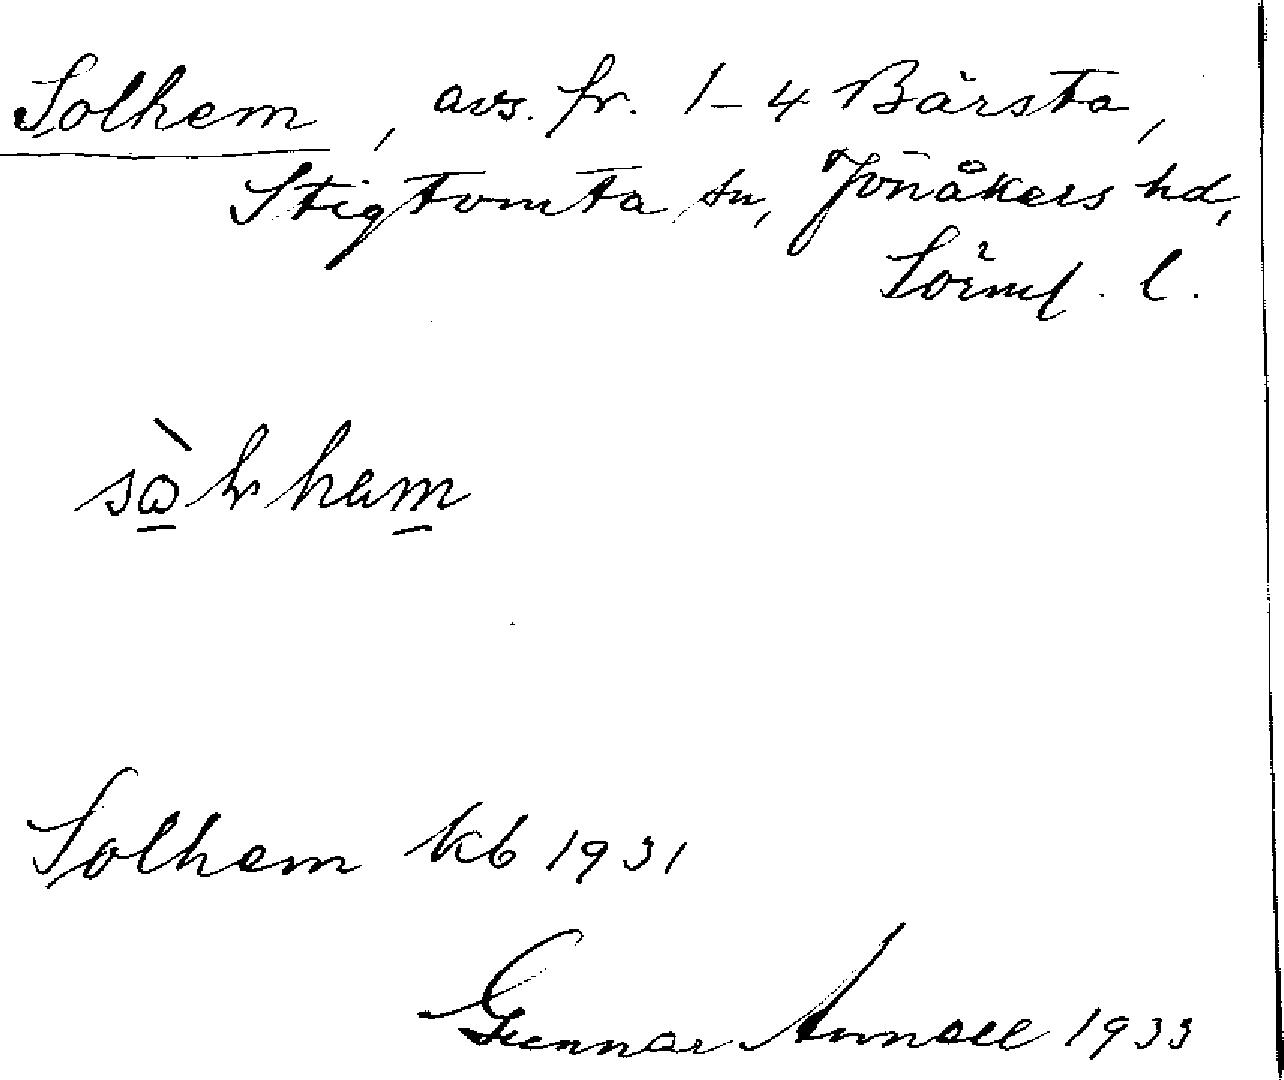 Solhem, avs. fr. 1-4 Bärsta,
Stigtomta sn, Jönåkers hd,
Sörml. l.
Solhem kb 1931
Gunnar 1933